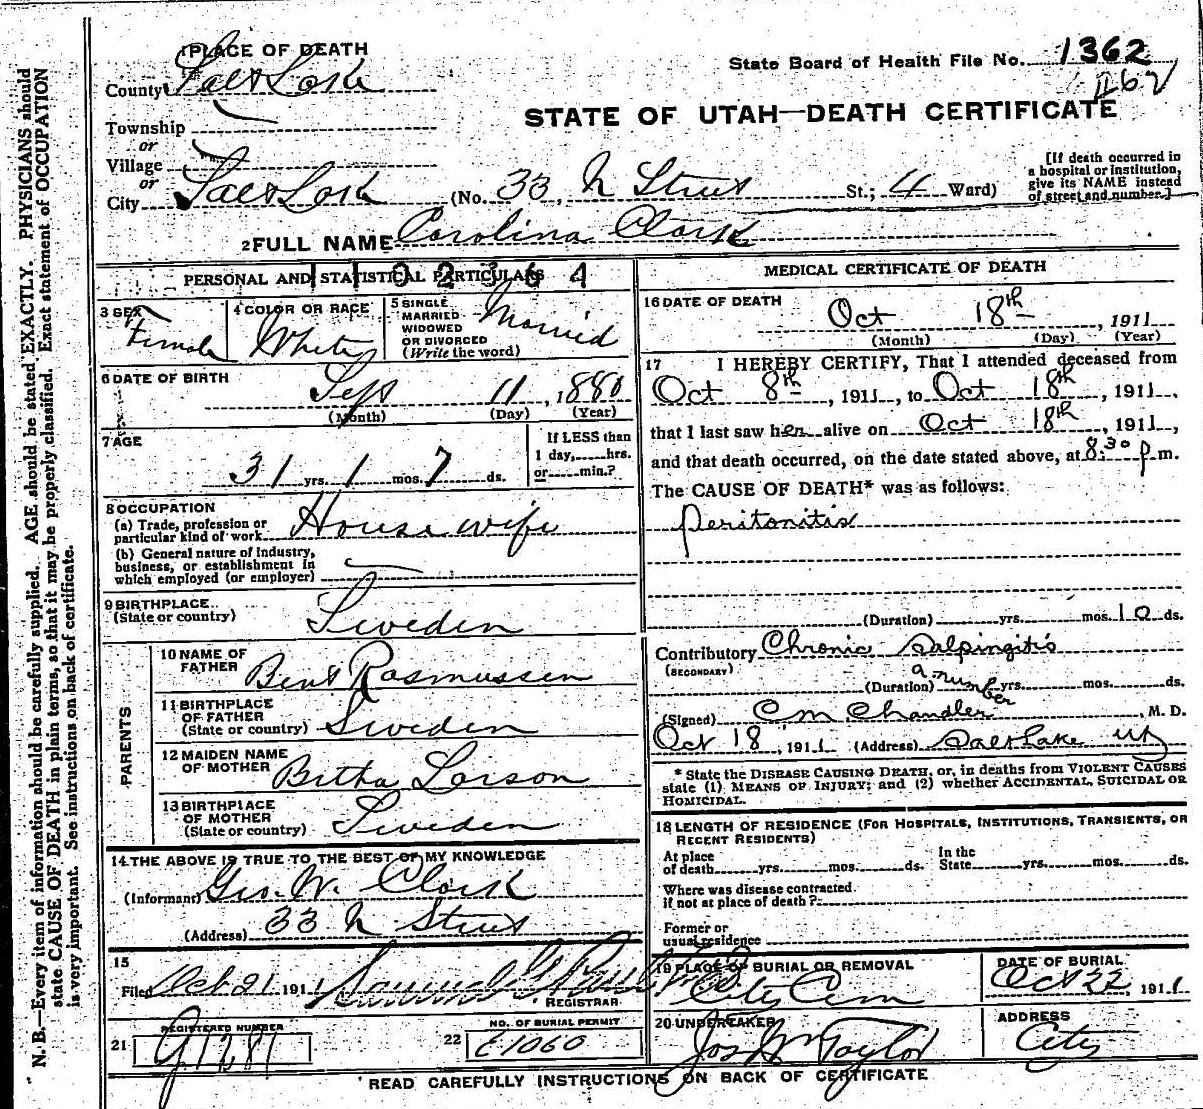 1 PLACE OF DEATH
State Board of Health File No. 1362
1362
County Salt Lake
STATE OF UTAH—DEATH CERTIFICATE
Township
or
Village
or
City Salt Lake (No. 33, N Street St.; 4 Ward)
[If death occurred in
a hospital or institution,
give its NAME instead
of street and number.]
2 FULL NAME Carolina Clark
PERSONAL AND STATISTICAL PARTICULARS
1102364
3 SEX
Female
4 COLOR OR RACE
White
5 SINGLE
MARRIED
WIDOWED
OR DIVORCED
(Write the word)
Married
6 DATE OF BIRTH
Sept 11, 1880
(Month) (Day) (Year)
7 AGE
31 yrs. 1 mos. 7 ds.
If LESS than
1 day, hrs.
or min.?
8 OCCUPATION
(a) Trade, profession or
particular kind of work House wife
(b) General nature of Industry,
business, or establishment in
which employed (or employer)
9 BIRTHPLACE
(State or country) Sweden
PARENTS
10 NAME OF
FATHER Bent Rasmussen
11 BIRTHPLACE
OF FATHER
(State or country) Sweden
12 MAIDEN NAME
OF MOTHER Bertha Larson
13 BIRTHPLACE
OF MOTHER
(State or country) Sweden
14 THE ABOVE IS TRUE TO THE BEST OF MY KNOWLEDGE
(Informant) Geo. W. Clark
(Address) 33 N Street
15
Filed Oct 21 191
REGISTRAR
REGISTERED NUMBER
21 G1281
NO. OF BURIAL PERMIT
22 E1060
MEDICAL CERTIFICATE OF DEATH
16 DATE OF DEATH
Oct 18th, 1911
(Month) (Day) (Year)
17 I HEREBY CERTIFY, That I attended deceased from
Oct 8th, 1911, to Oct 18th, 1911,
that I last saw her alive on Oct 18th, 1911,
and that death occurred, on the date stated above, at 8:30 p m.
The CAUSE OF DEATH* was as follows:
Peritonitis
(Duration) yrs. mos. 10 ds.
Contributory Chronic Salpingitis
(SECONDARY)
(Duration) a number yrs. mos. ds.
(Signed) C M Chandler, M. D.
Oct 18, 1911 (Address) Salt Lake Ut
* State the DISEASE CAUSING DEATH, or, in deaths from VIOLENT CAUSES
state (1) MEANS OF INJURY; and (2) whether ACCIDENTAL, SUICIDAL OR
HOMICIDAL.
18 LENGTH OF RESIDENCE (FOR HOSPITALS, INSTITUTIONS, TRANSIENTS, OR
RECENT RESIDENTS)
At place
of death yrs. mos. ds.
In the
State yrs. mos. ds.
Where was disease contracted
if not at place of death?
Former or
usual residence
19 PLACE OF BURIAL OR REMOVAL
City Cem
DATE OF BURIAL
Oct 22, 1911
20 UNDERTAKER
Jos Wm Taylor
ADDRESS
City
READ CAREFULLY INSTRUCTIONS ON BACK OF CERTIFICATE
N. B.—Every item of information should be carefully supplied. AGE should be stated EXACTLY. PHYSICIANS should
state CAUSE OF DEATH in plain terms, so that it may be properly classified. Exact statement of OCCUPATION
is very important. See instructions on back of certificate.